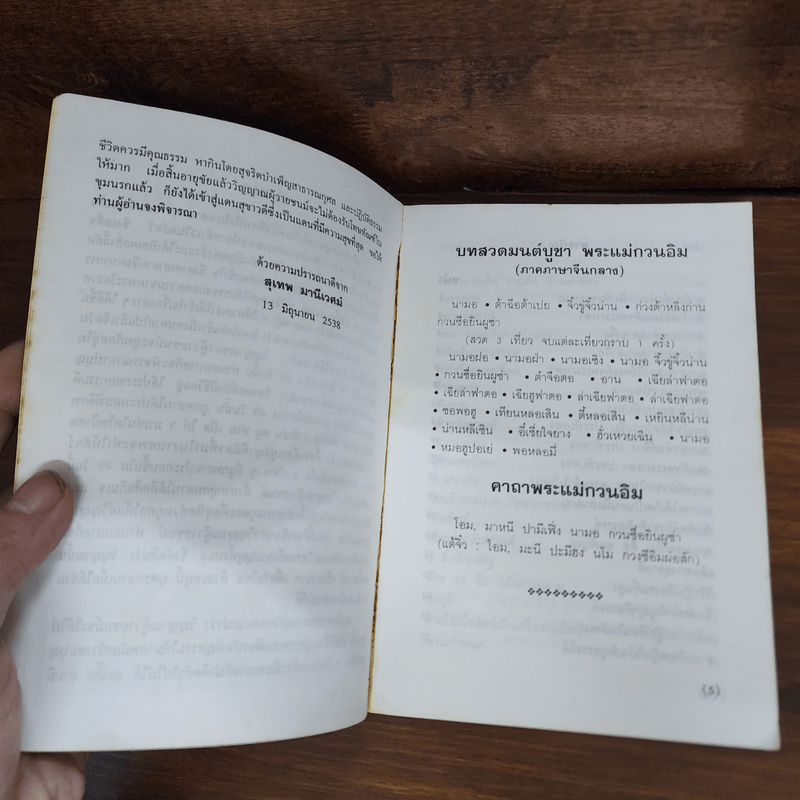 ชีวิตควรมีคุณธรรม หากินโดยสุจริตบำเพ็ญสาธารณกุศล และปฏิบัติธรรม
ให้มาก เมื่อสิ้นอายุขัยแล้ววิญญาณผู้วายชนม์จะไม่ต้องรับโทษทัณฑ์ใน
ขุมนรกแล้ว ก็ยังได้เข้าสู่แดนสุขาวดีซึ่งเป็นแดนที่มีความสุขที่สุด ขอให้
ท่านผู้อ่านจงพิจารณา
ด้วยความปรารถนาดีจาก
สุเทพ มานีเวศม์
13 มิถุนายน 2538
บทสวดมนต์บูชา พระแม่กวนอิม
(ภาคภาษาจีนกลาง)
นามอ • ต้าฉือต้าเปย • จิ้วขู่จิ้วน่าน • ก่วงต้าหลิงก่าน
กวนซือยินผูซ่า
(สวด 3 เที่ยว จบแต่ละเที่ยวกราบ 1 ครั้ง)
นามอฝอ • นามอฝ่า • นามอเซิง • นามอ จิ้วขู่จิ้วน่าน
• กวนซือยินผูซ่า • ต๋าจือตอ • อาน • เฉียล่าฟาตอ
• เฉียล่าฟาตอ • เฉียฮูฟาตอ • ล่าเฉียฟาตอ • ล่าเฉียฟาตอ
• ซอพอฮู • เทียนหลอเสิน • ตี้หลอเสิน • เหยินหลีน่าน
• น่านหลีเซิน • อี๋เชี่ยใจยาง • ฮั่วเหวยเฉิน • นามอ
• หมอฮูปอเย่ • พอหลอมี่
คาถาพระแม่กวนอิม
โอม, มาหนี ปามีเฟิ่ง นามอ กวนซือยินผูซ่า
(แต้จิ๋ว : โอม, มะนี ปะมีฮง นโม กวงซีอิมผ่อสัก)
(5)